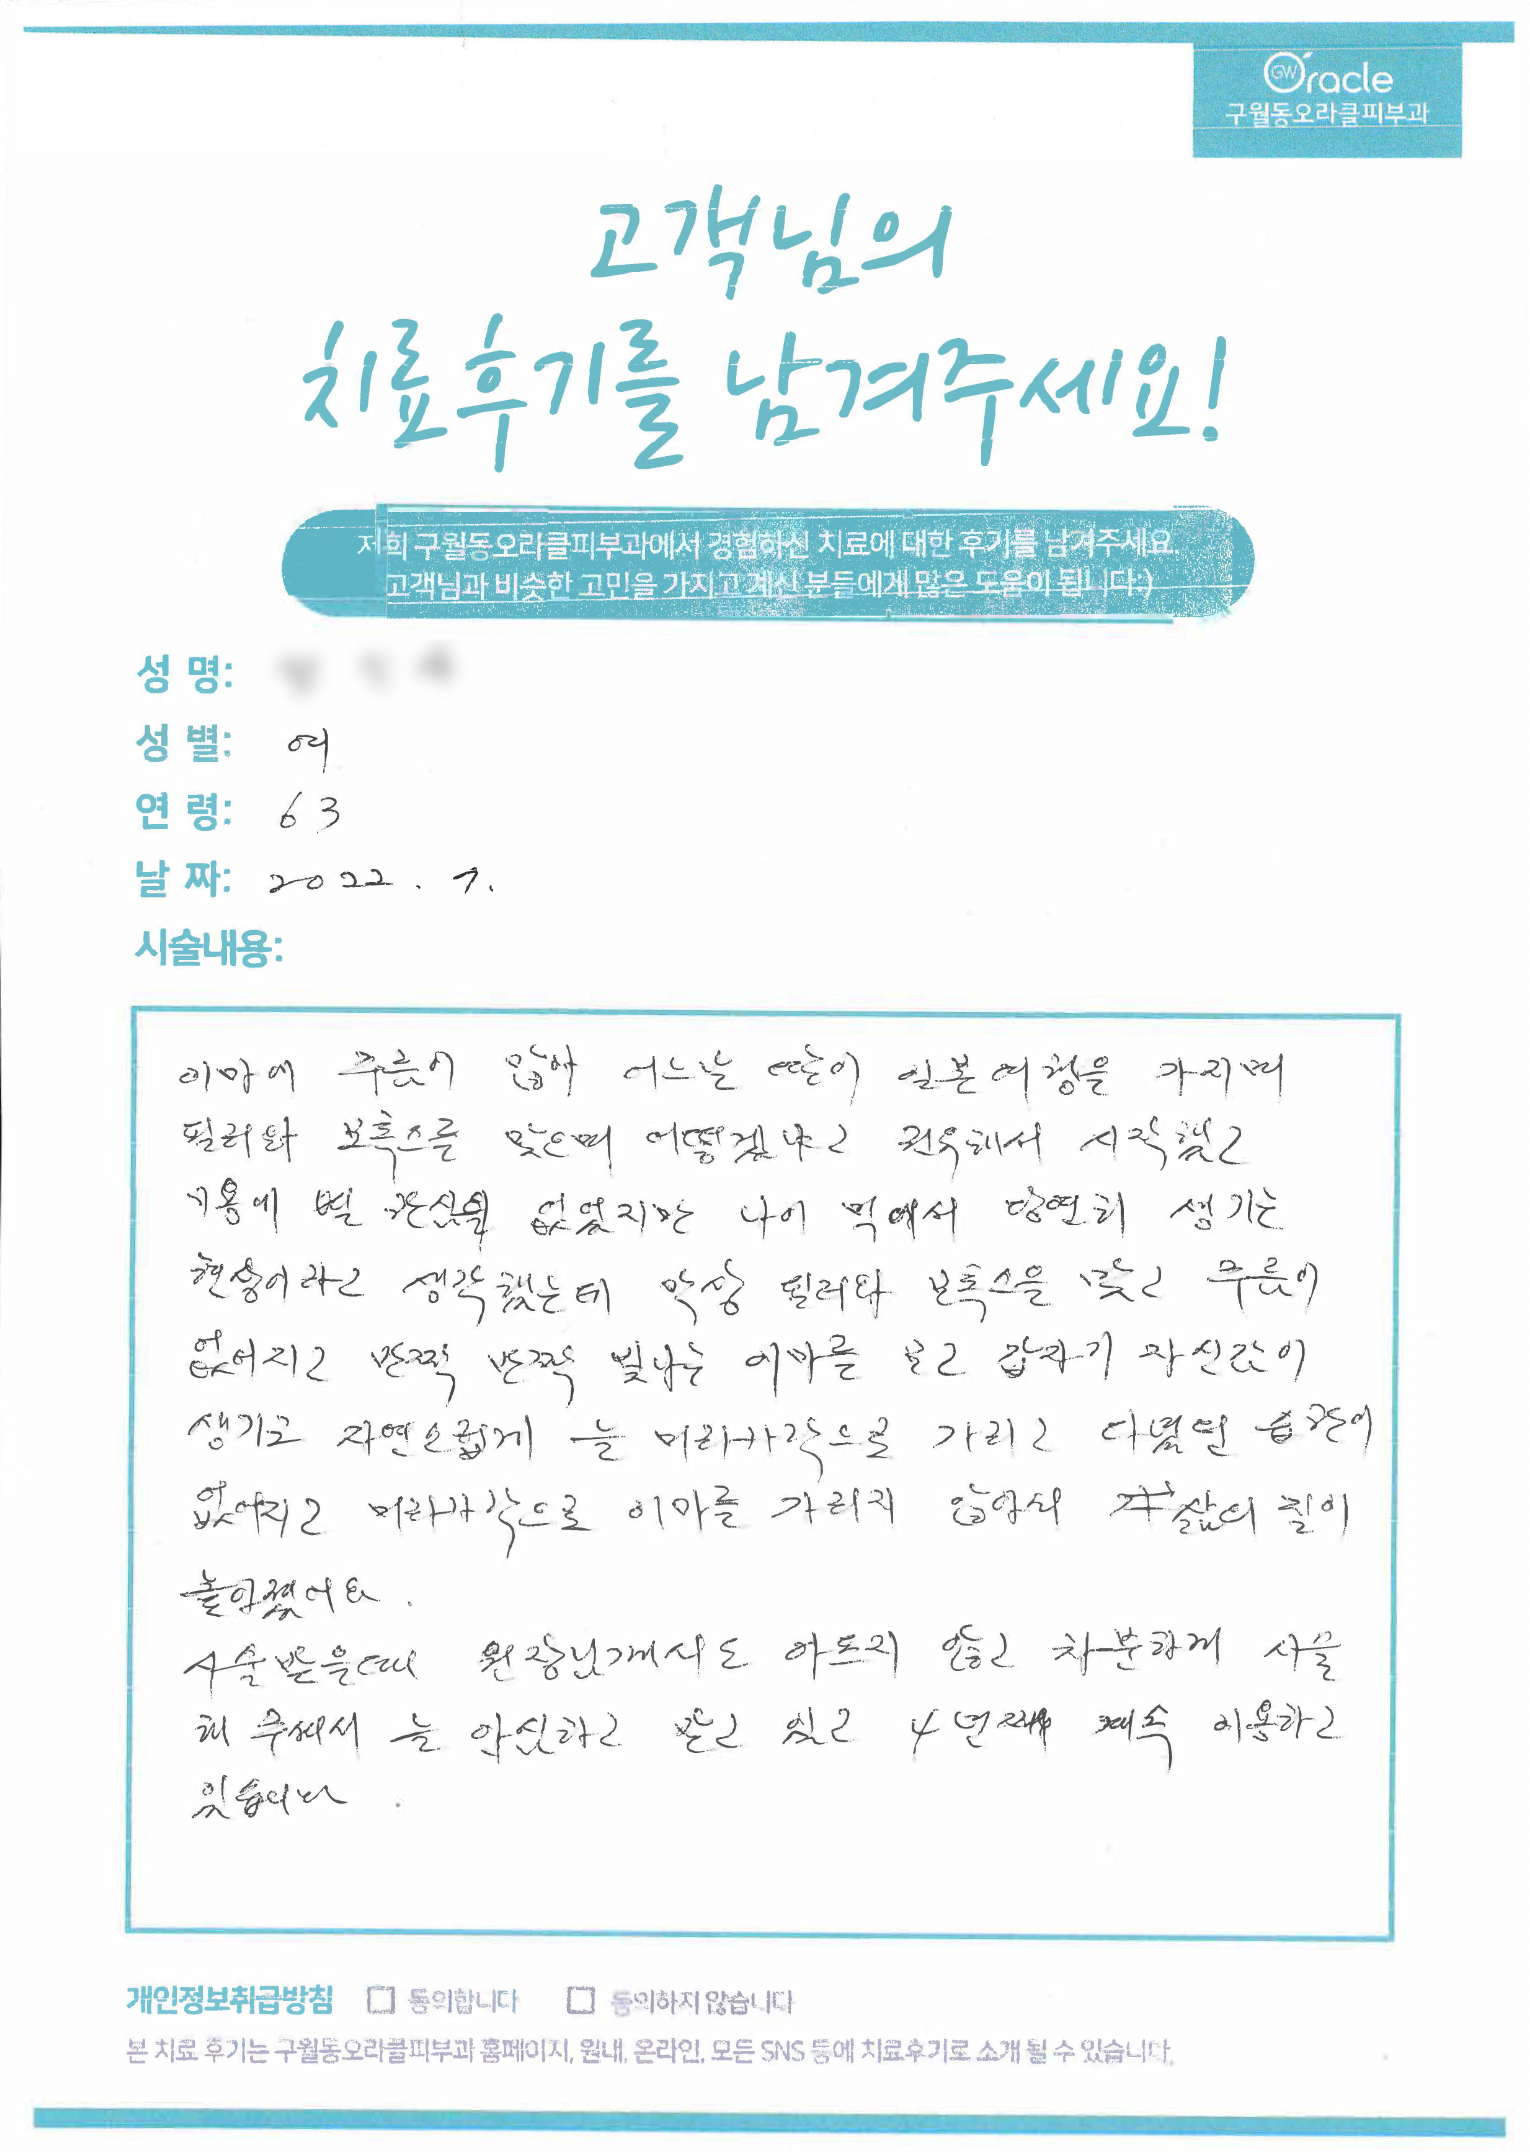 GW Oracle
구월동오라클피부과
고객님의
치료후기를 남겨주세요!
저희 구월동오라클피부과에서 경험하신 치료에 대한 후기를 남겨주세요.
고객님과 비슷한 고민을 가지고 계신 분들에게 많은 도움이 됩니다:)
성 명:
성 별: 여
연 령: 63
날 짜: 2022. 7.
시술내용:
이마에 주름이 많아 어느날 딸이 일본여행을 가자며
필러와 보톡스를 맞으며 어떻겠냐고 권유해서 시작했고
미용에 별 관심을 없었지만 나이 먹어서 당연히 생기는
현상이라고 생각했는데 막상 필러와 보톡스을 맞고 주름이
없어지고 반짝 반짝 빛나는 이마를 보고 갑자기 자신감이
생기고 자연스럽게 늘 머리카락으로 가리고 다녔던 습관이
없어지고 머리카락으로 이마를 가리지 않아서 삶의 질이
높아졌어요.
시술받을때 원장님께서도 아프지 않고 차분하게 시술
해 주셔서 늘 안심하고 받고 있고 4년째 계속 이용하고
있습니다.
개인정보취급방침 □ 동의합니다 □ 동의하지 않습니다
본 치료 후기는 구월동오라클피부과 홈페이지, 원내, 온라인, 모든 SNS 등에 치료후기로 소개 될 수 있습니다.